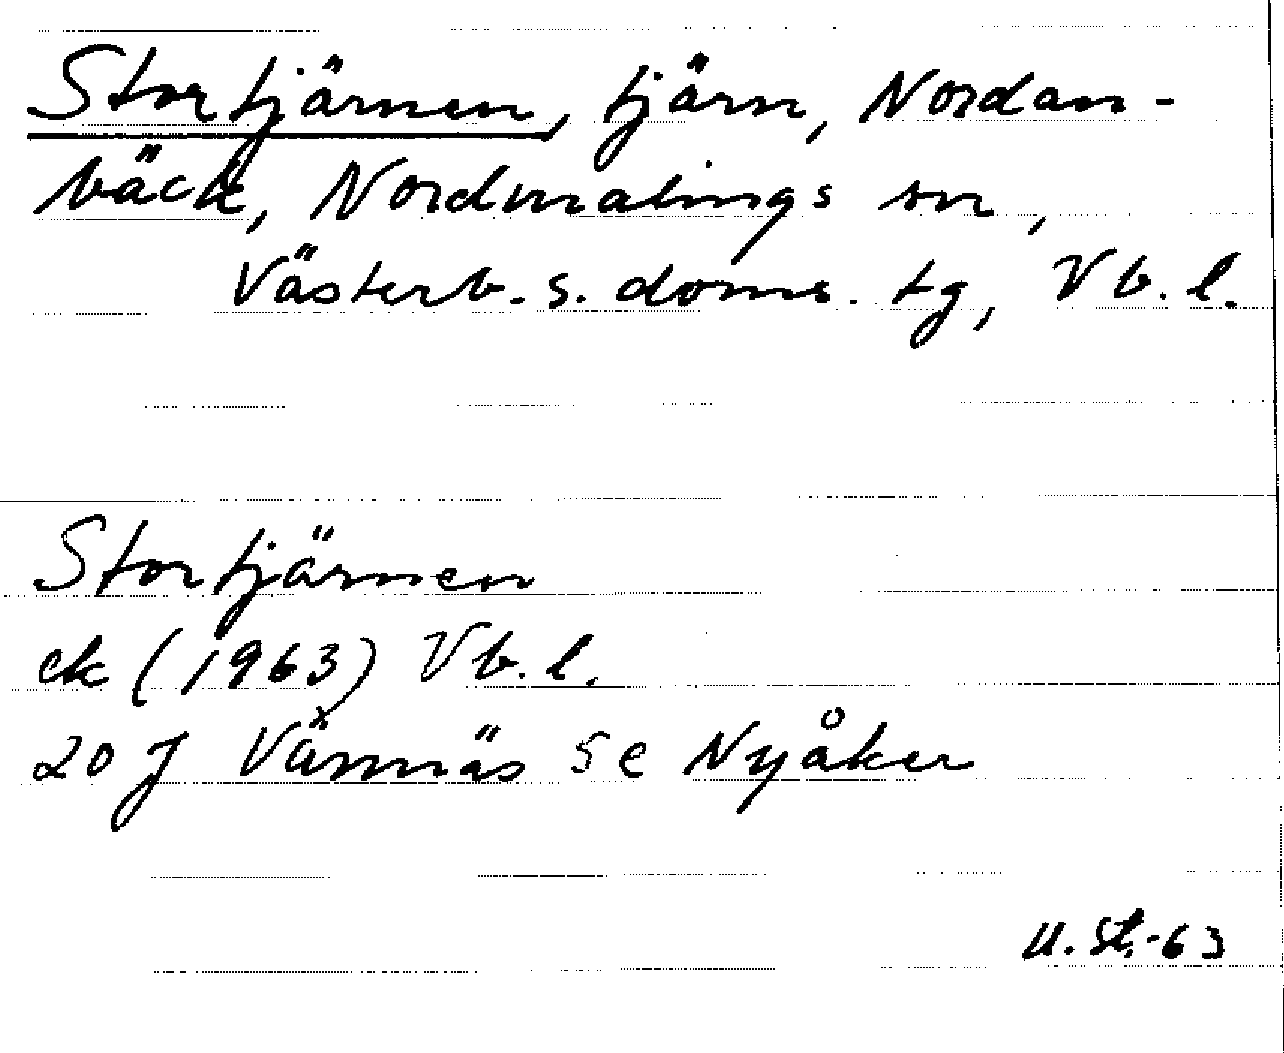 Stortjärnen, tjärn, Nordan-
bäck, Nordmalings sn,
Västerb. s. doms. tg, Vb. l.
Stortjärnen
ek (1963) Vb. l.
20 J Vännäs 5 e Nyåker
U. St. -63